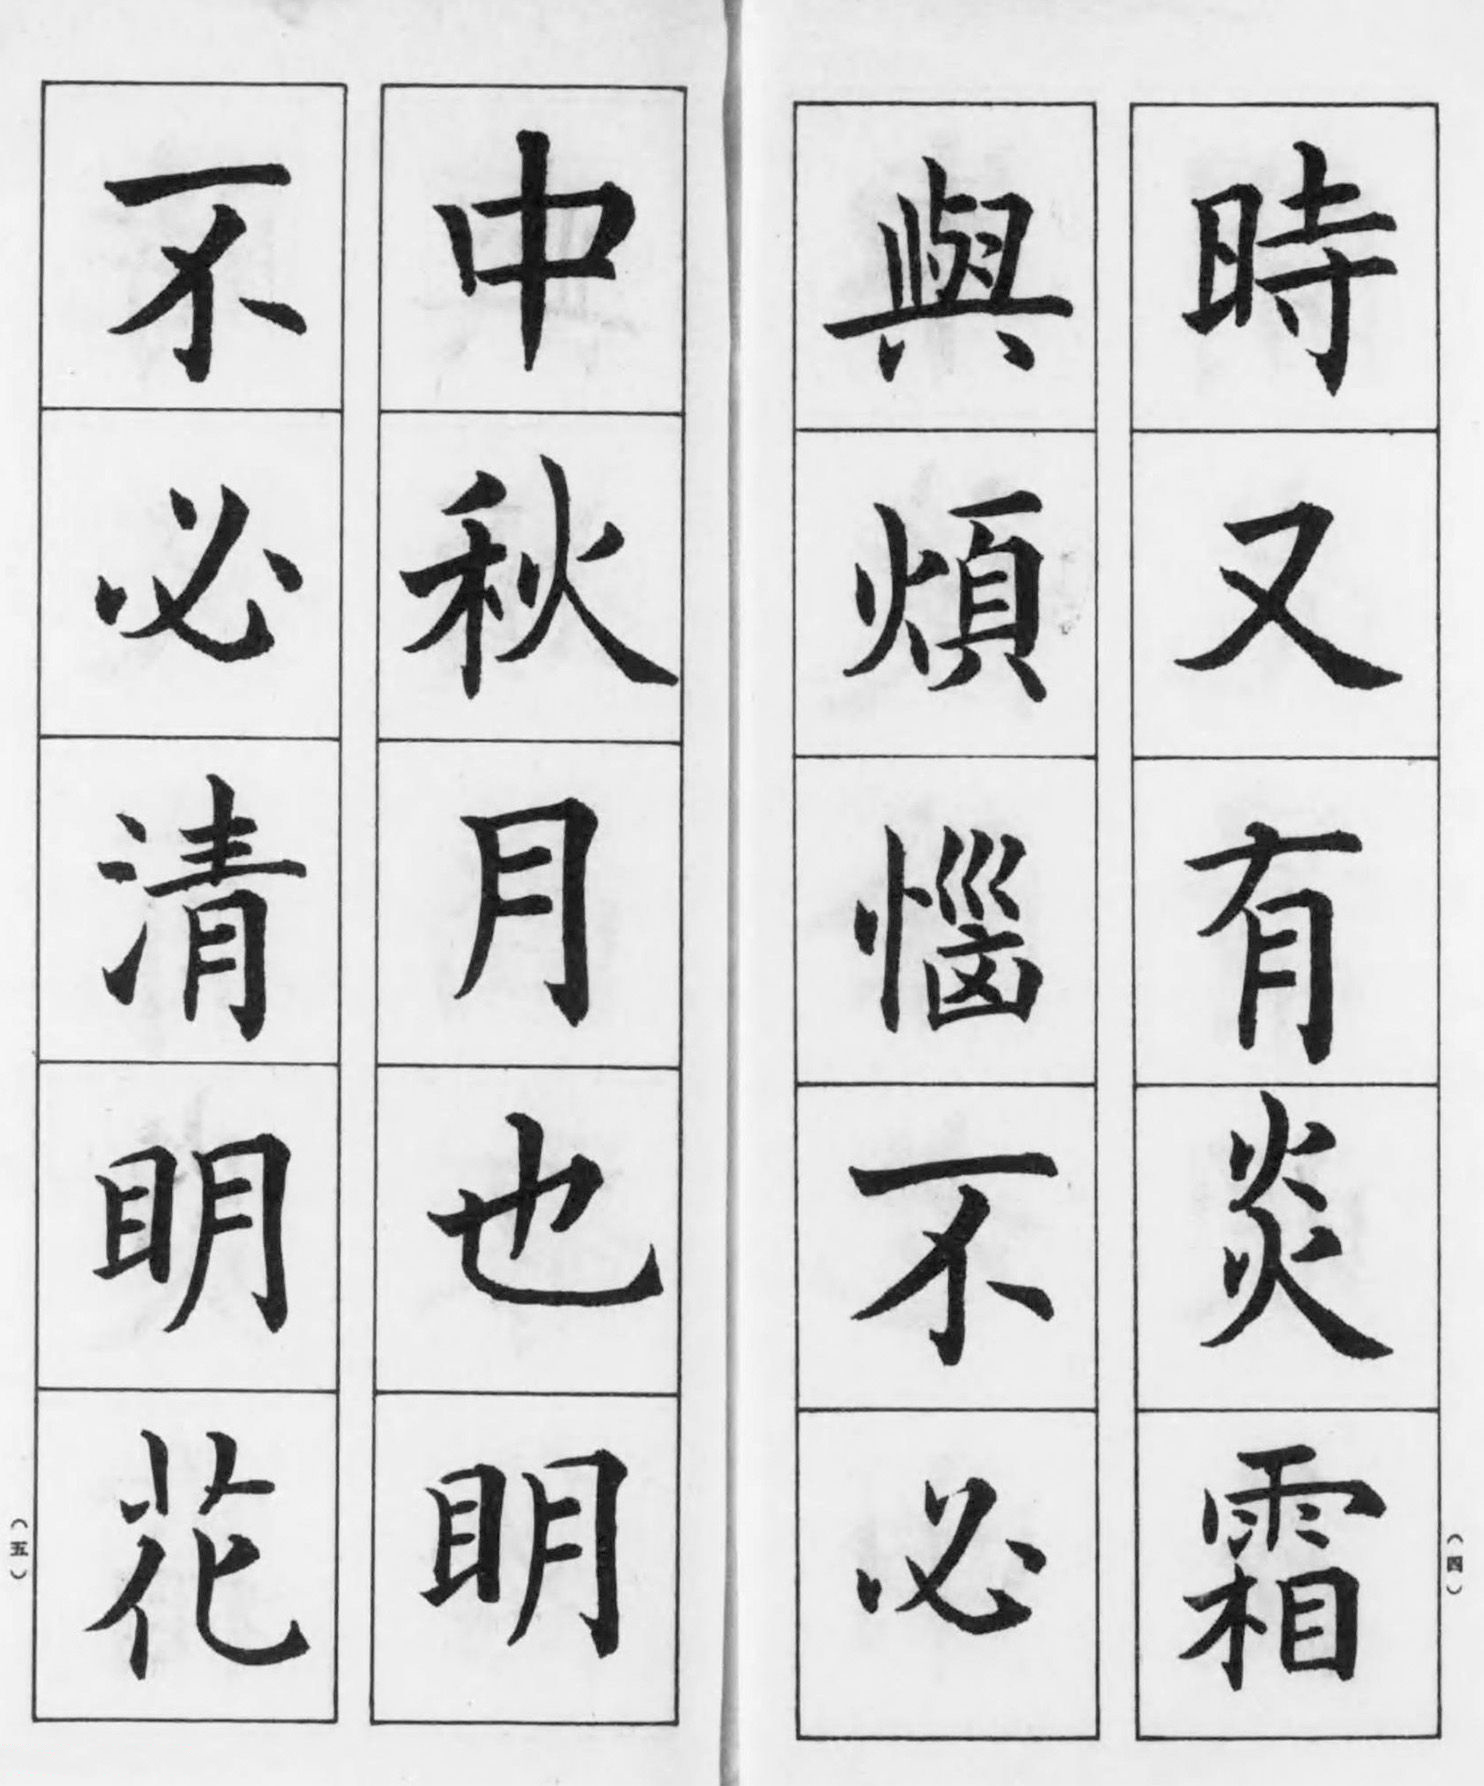 時又有炎霜
與煩惱不必
（四）
中秋月也明
不必清明花
（五）